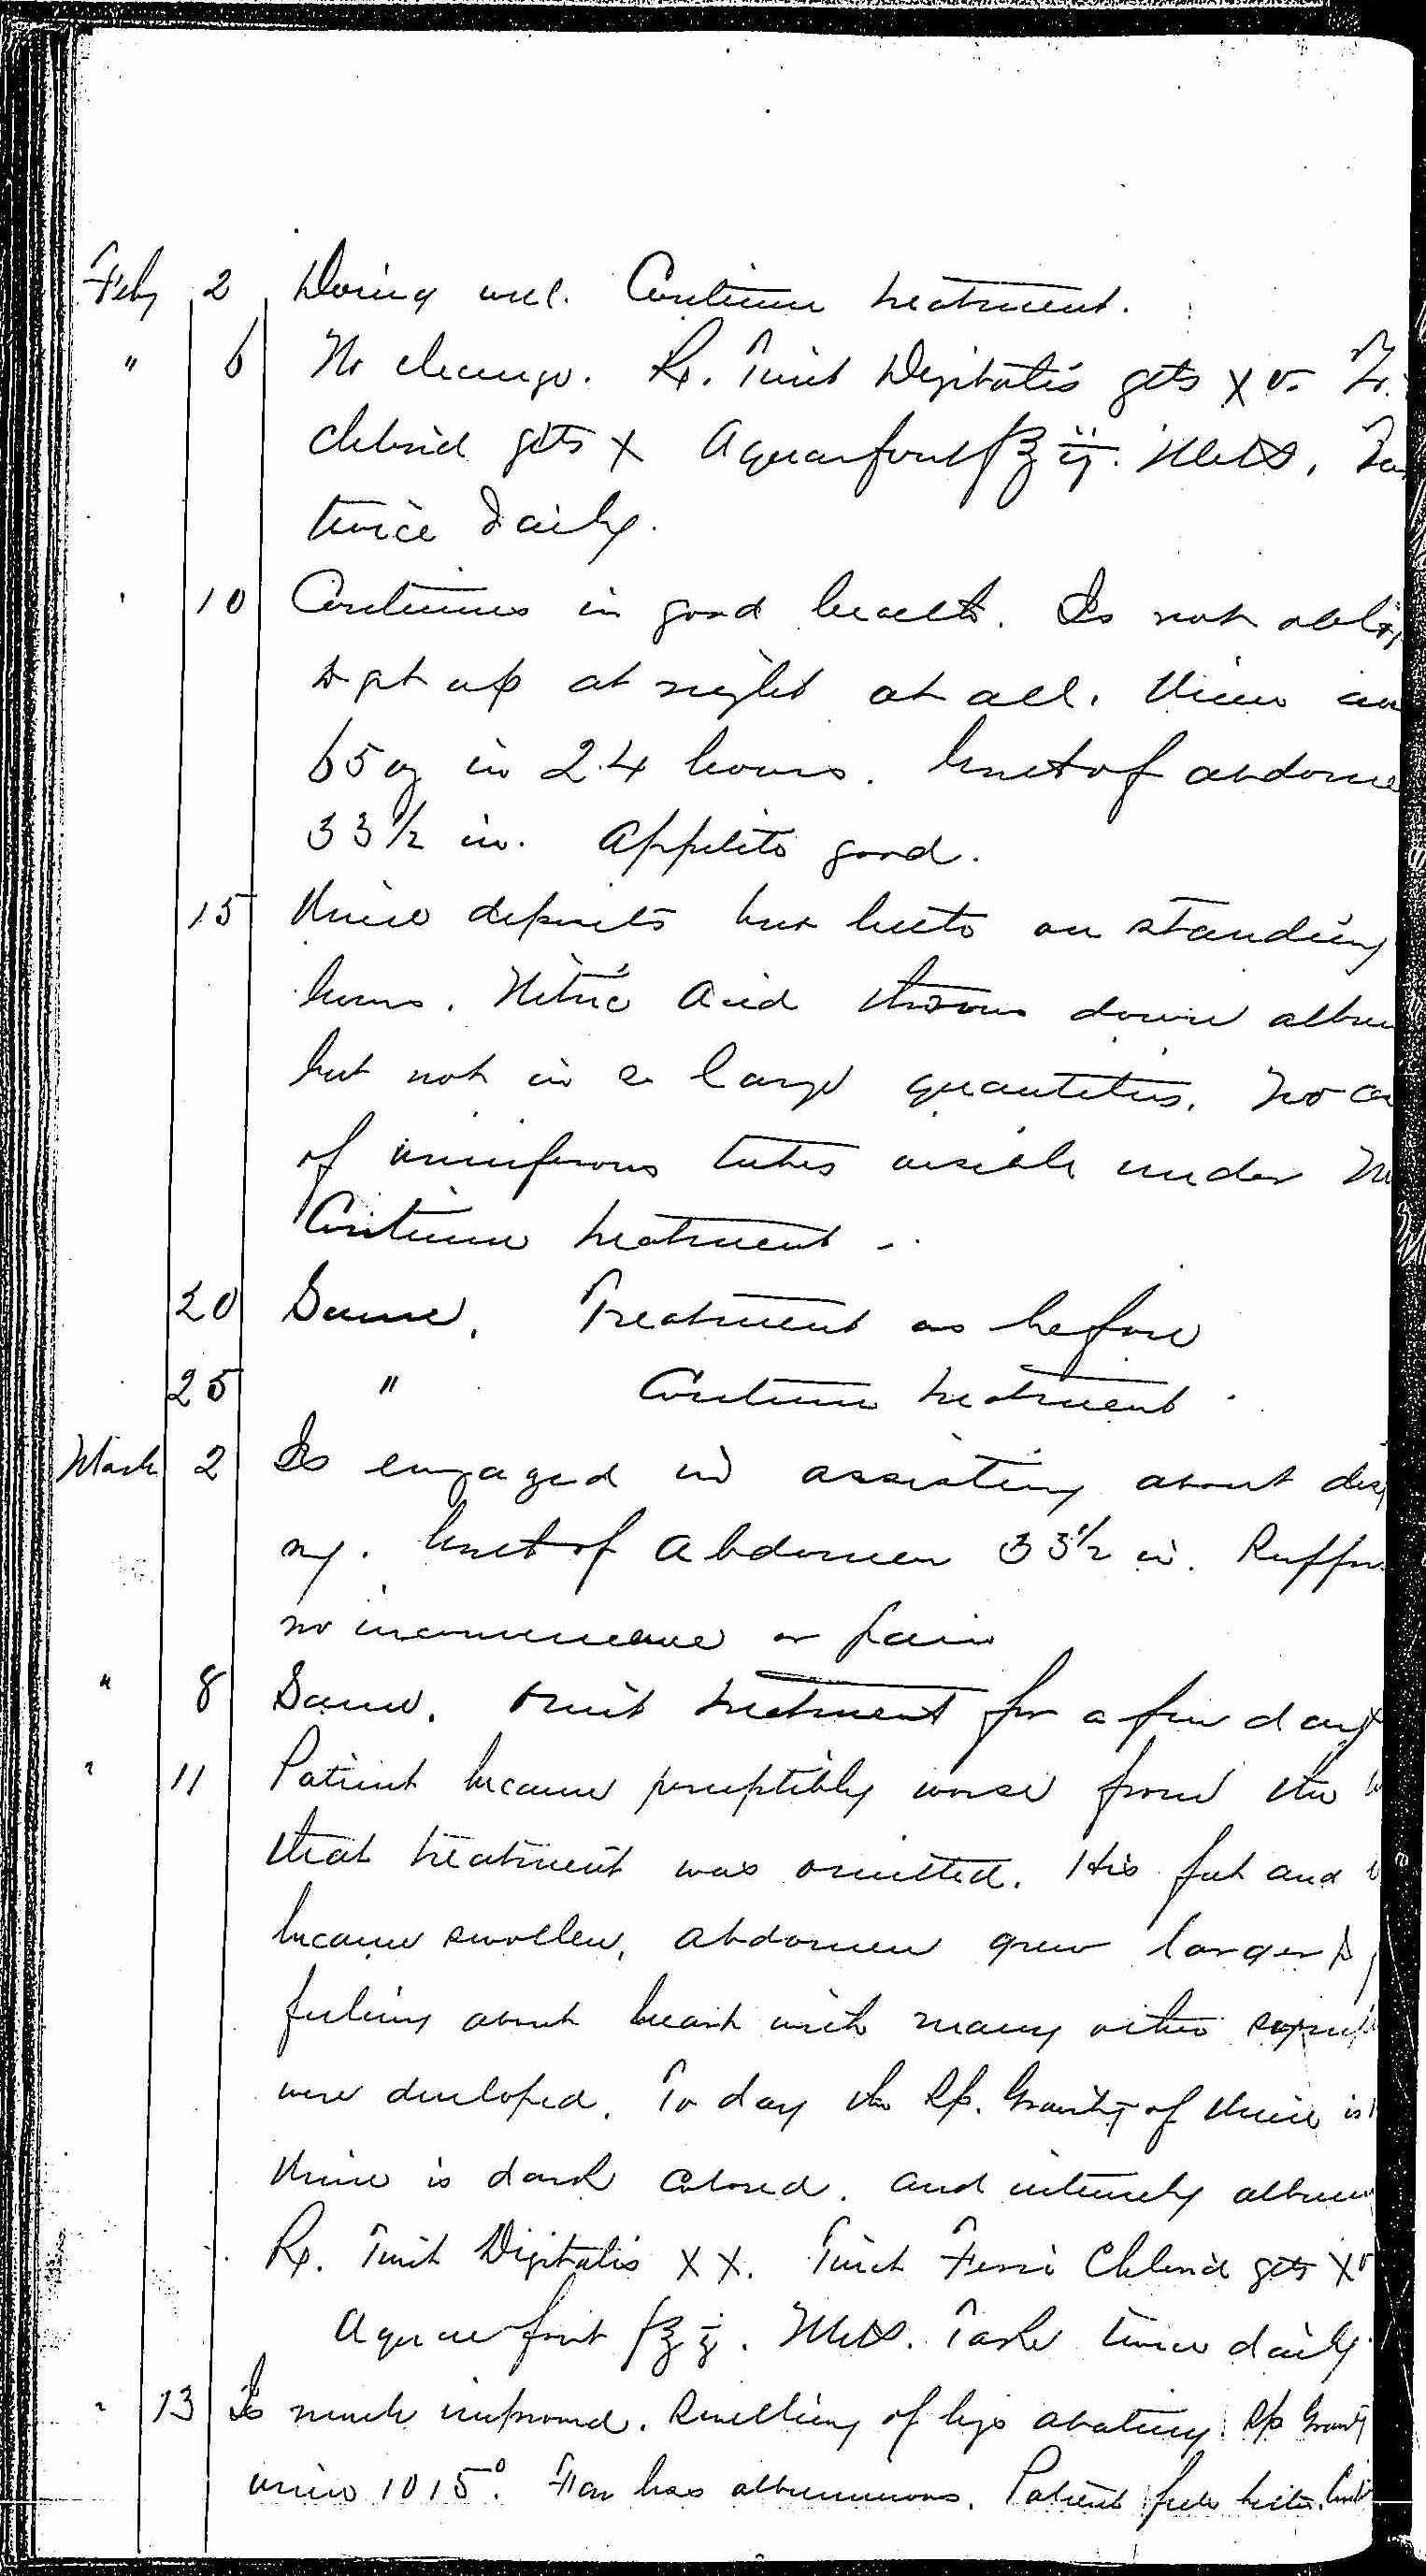 Feby 2 Doing well. Continue treatment.
" 6 No change. Rx. Tinct Digitalis gtts XV.
Chlorid gtts X Aquae font f℥ ij. Mix.
twice daily.
10 Continues in good health. Is not oblig
to get up at night at all. Urine
65 oz in 24 hours. Circt of abdome
33 1/2 in. Appetite good.
15 Urine deposits but little on standing
hours. Nitric Acid throws down albu
but not in so large quantities. No
of uriniferous tubes visible under
Continue treatment.
20 Same. Treatment as before
25 " Continue treatment.
March 2 Is engaged in assisting about
Circt of Abdomen 33 1/2 in. Suffer
no inconvenience or pain
" 8 Same. Omit treatment for a few days
" 11 Patient became perceptibly worse from the
that treatment was omitted. His feet and
became swollen, abdomen grew larger &
feeling about heart with many other
were developed. To day the Sp. Gravity of Urine is
Urine is dark colored. and intensely album
Rx. Tinct Digitalis XX. Tinct Ferri Chlorid gtts XV
Aquae font f℥ j. Mix. Take twice daily
" 13 Is much improved. Swelling of legs abating. Sp Gravity
urine 1015°. Far less albuminous. Patient feels better.